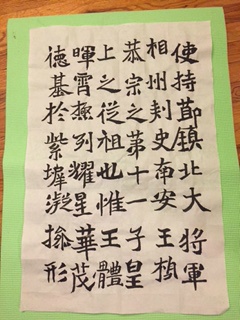 使持節鎮北大將軍
相州刾史南安王楨
恭宗之第十一子皇
上之從祖也惟王體
暉霄極列耀星華茂
德基於紫墀凝操形